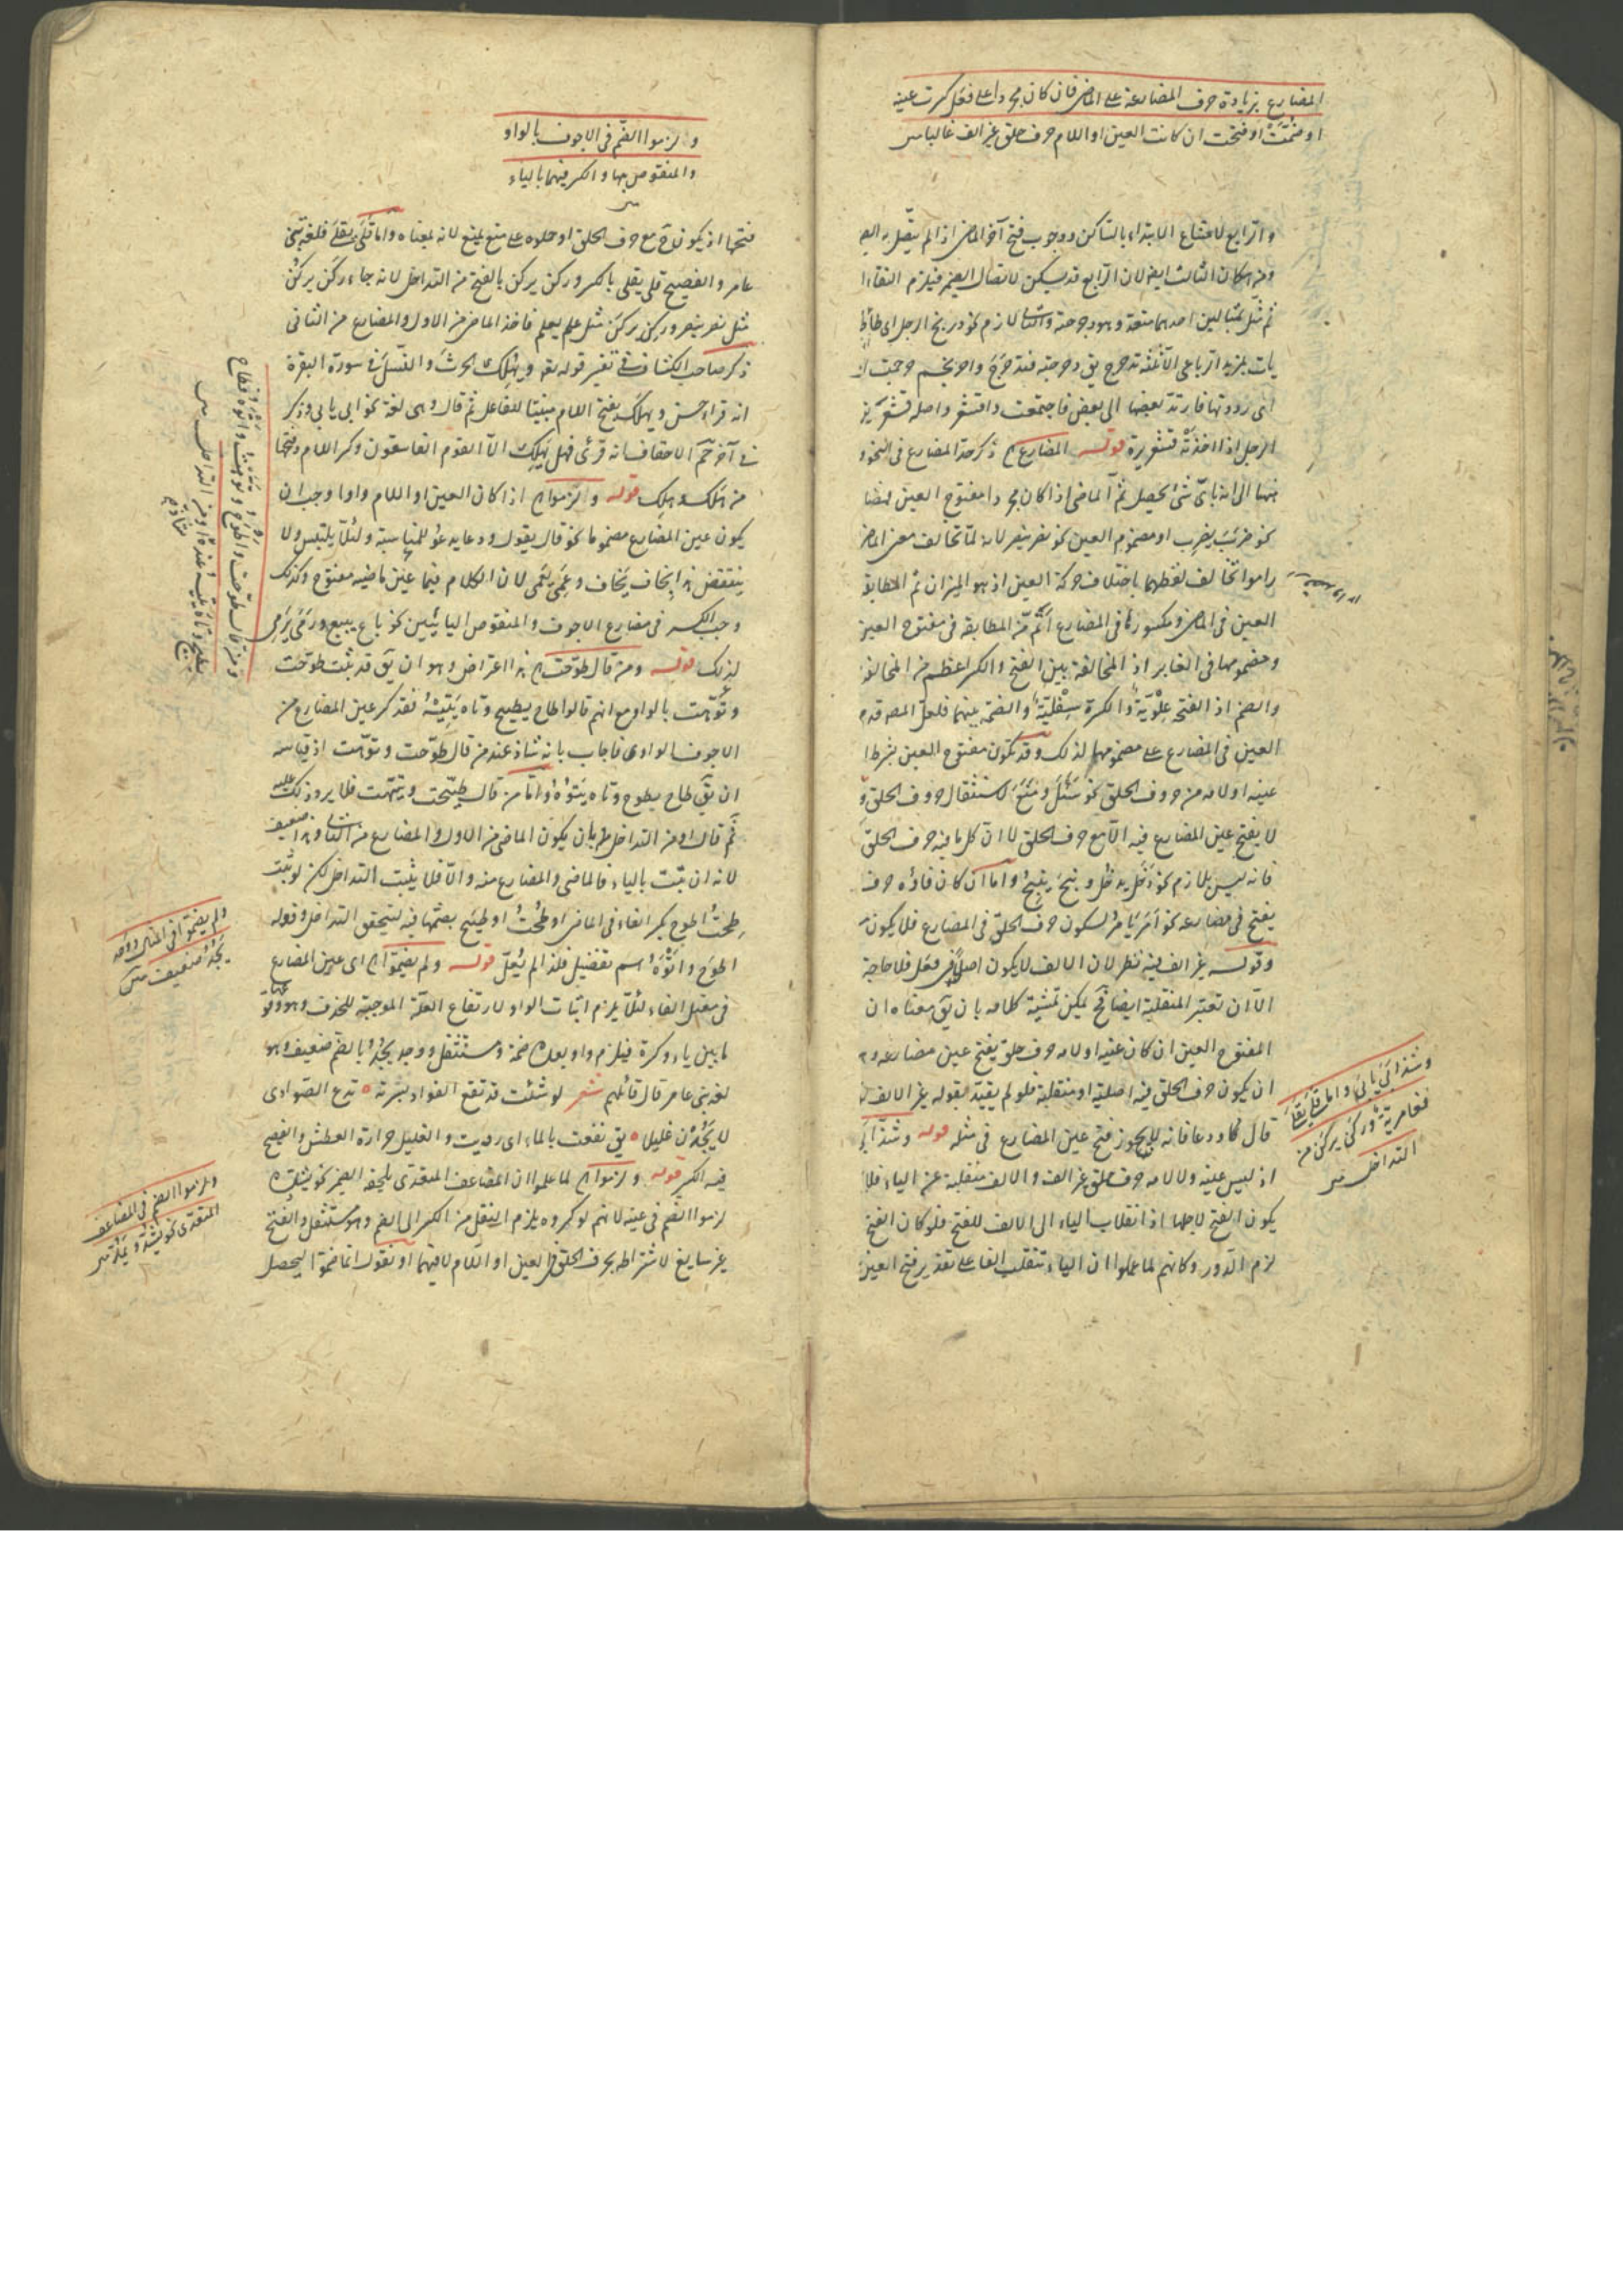 المضارع بزيادة حرف المضارعة على الماضى فان كان مجردا على فعل كسرت عينه
او ضمت او فتحت ان كانت العين او اللام حرف حلق غير الف غالبا س
والرابع لامتناع الابتداء بالساكن ووجوب فتح آخر الماضى اذا لم يتصل به الض
ومن اسكان الثالث ايضا لان الرابع قد يسكن لاتصال الضمير فيلزم التقاء ا
ثم مثل بمثالين احدهما متعد وهو دحرجته والثانى لازم نحو دربخ الرجل اى طأطأ
يات لمزيد الرباعى الثلثة تدحرج يق دحرجته فتدحرج واحرنجم حرجمت ا
اى رددتها فارتد بعضها الى بعض فاجتمعت واقشعر واصله قشعر يق
الرجل اذا اخذته قشعريرة قوله المضارع آه ذكر حد المضارع فى النحو و
ههنا الى انه باى شئ يحصل ثم الماضى اذا كان مجردا مفتوح العين لمضا
نحو ضرب يضرب او مضموم العين نحو نصر ينصر لانه لما تخالف معنى الماض
راموا تخالف لفظهما باختلاف حركة العين اذ هو الميزان ثم المطابقة
العين فى الماضى ومكسورها فى المضارع اتم من المطابقة فى مفتوح العين
ومضمومها فى الغابر اذ المخالفة بين الفتح والكسر اعظم من المخالفة
والضم اذ الفتحة علوية والكسرة سفلية والضمة بينهما فلعل المص قدم
العين فى المضارع على مضمومها لذلك وقد تكون مفتوح العين بشرط ا
عينه او لامه من حروف الحلق نحو سئل ومنع لاستثقال حروف الحلق و
لا يفتح عين المضارع فيه الا مع حرف الحلق لا ان كل ما فيه حرف الحلق
فانه ليس بلازم نحو دخل يدخل ونبح ينبح واما ان كان فاؤه حرف
يفتح فى مضارعه نحو امر يامر لسكون حرف الحلق فى المضارع فلا يكون
وقوله غير الف فيه نظر لان الالف لا يكون اصلا فى فعل فلا حاجة
الا ان تعتبر المنقلبة ايضا فح يمكن تمشية كلامه بان يق معناه ان
المفتوح العين ان كان عينه او لامه حرف حلق يفتح عين مضارعه و
ان يكون حرف الحلق فيه اصلية او منقلبة فلو لم يقيد بقوله غير الالف
قال كاد ودعا فانه لا يجوز فتح عين المضارع فى مثله قوله وشذ ابى
اذ ليس عينه ولا لامه حرف حلق غير الف والالف منقلبة عن الياء فلا
يكون الفتح لاجلها اذ انقلاب الياء الى الالف للفتح فلو كان الفتح
لزم الدور وكانهم لما علموا ان الياء تنقلب الفا على تقدير فتح العين
وشذ ابى يابى واما قلى يقلى
فعامرية وركن يركن من
التداخل س
ولزموا الضم فى الاجوف بالواو
والمنقوص بها والكسر فيهما بالياء
س
فتحها اذ يكون ح مع حرف الحلق او حملوه على منع يمنع لانه بمعناه واما قلى يقلى فلغة بنى
عامر والفصيح قلى يقلى بالكسر وركن يركن بالفتح من التداخل لانه جاء ركن يركن
مثل نصر ينصر وركن يركن مثل علم يعلم فاخذ الماضى من الاول والمضارع من الثانى
ذكر صاحب الكشاف فى تفسير قوله تعه ويهلك الحرث والنسل فى سورة البقرة
انه قراءة حسن ويهلك بفتح اللام مبنيا للفاعل ثم قال وهى لغة نحو ابى يابى وذكر
فى آخر حم الاحقاف انه قرئ فهل يهلك الا القوم الفاسقون وكسر اللام وفتحها
من هلك وهلك قوله ولزموا آه اذا كان العين او اللام واوا وجب ان
يكون عين المضارع مضموما نحو قال يقول ودعا يدعو للمناسبة ولئلا يلتبس ولا
ينتقض هذا بخاف يخاف وعمى يعمى لان الكلام فيما عين ماضيه مفتوح وكذلك
وجب الكسر فى مضارع الاجوف والمنقوص اليائيين نحو باع يبيع ورمى يرمى
لذلك قوله ومن قال طوحت آه هذا اعتراض وهو ان يق قد ثبت طوحت
وتوهت بالواو مع انهم قالوا طاح يطيح وتاه يتيه فقد كسر عين المضارع من
الاجوف الواوى فاجاب بانه شاذ عند من قال طوحت وتوهت اذ قياسه
ان يق طاح يطوح وتاه يتوه واما من قال طيحت وتيهت فلا يرد ذلك عليه
ثم قال او من التداخل بان يكون الماضى من الاول والمضارع من الثانى وهذا ضعيف
لانه ان ثبت بالياء فالماضى والمضارع منه والا فلا يثبت التداخل لكن لو ثبت
طحت اطوح بكسر الفاء فى الماضى او طحت او طيح بضمها فيه ليتحقق التداخل وقوله
اطوح واتوه اسم تفضيل فلذا لم يعل قوله ولم يضموا آه اى عين المضارع
فى معتل الفاء لئلا يلزم اثبات الواو لارتفاع العلة الموجبة للحذف وهو وقوعها
ما بين ياء وكسرة فيلزم واو بعده ضمة ومستثقل ووجد يجد بالضم ضعيف وهو
لغة بنى عامر قال قائلهم شعر لو شئت قد نقع الفؤاد بشربة ٥ تدع الصوادى
لا يجدن غليلا ٥ يق نقعت بالماء اى رويت والغليل حرارة العطش والفصيح
فيه الكسر قوله ولزموا آه لما علموا ان المضاعف المتعدى يلحقه الضمير نحو يشده
لزموا الضم فى عينه لانهم لو كسروه يلزم النقل من الكسر الى الضم وهو مستثقل والفتح
غير سايغ لاشتراطه بحرف الحلق فى العين او اللام لا فيهما او نقول انما ضموا ليحصل
ومن قال طوحت واطوح وتوهت واتوه فطاح
يطيح وتاه يتيه شاذ عنده او من التداخل س
ولم يضموا فى المثال ووجد
يجد ضعيف س
ولزموا الضم فى المضاعف
المتعدى نحو يشده ويمده س